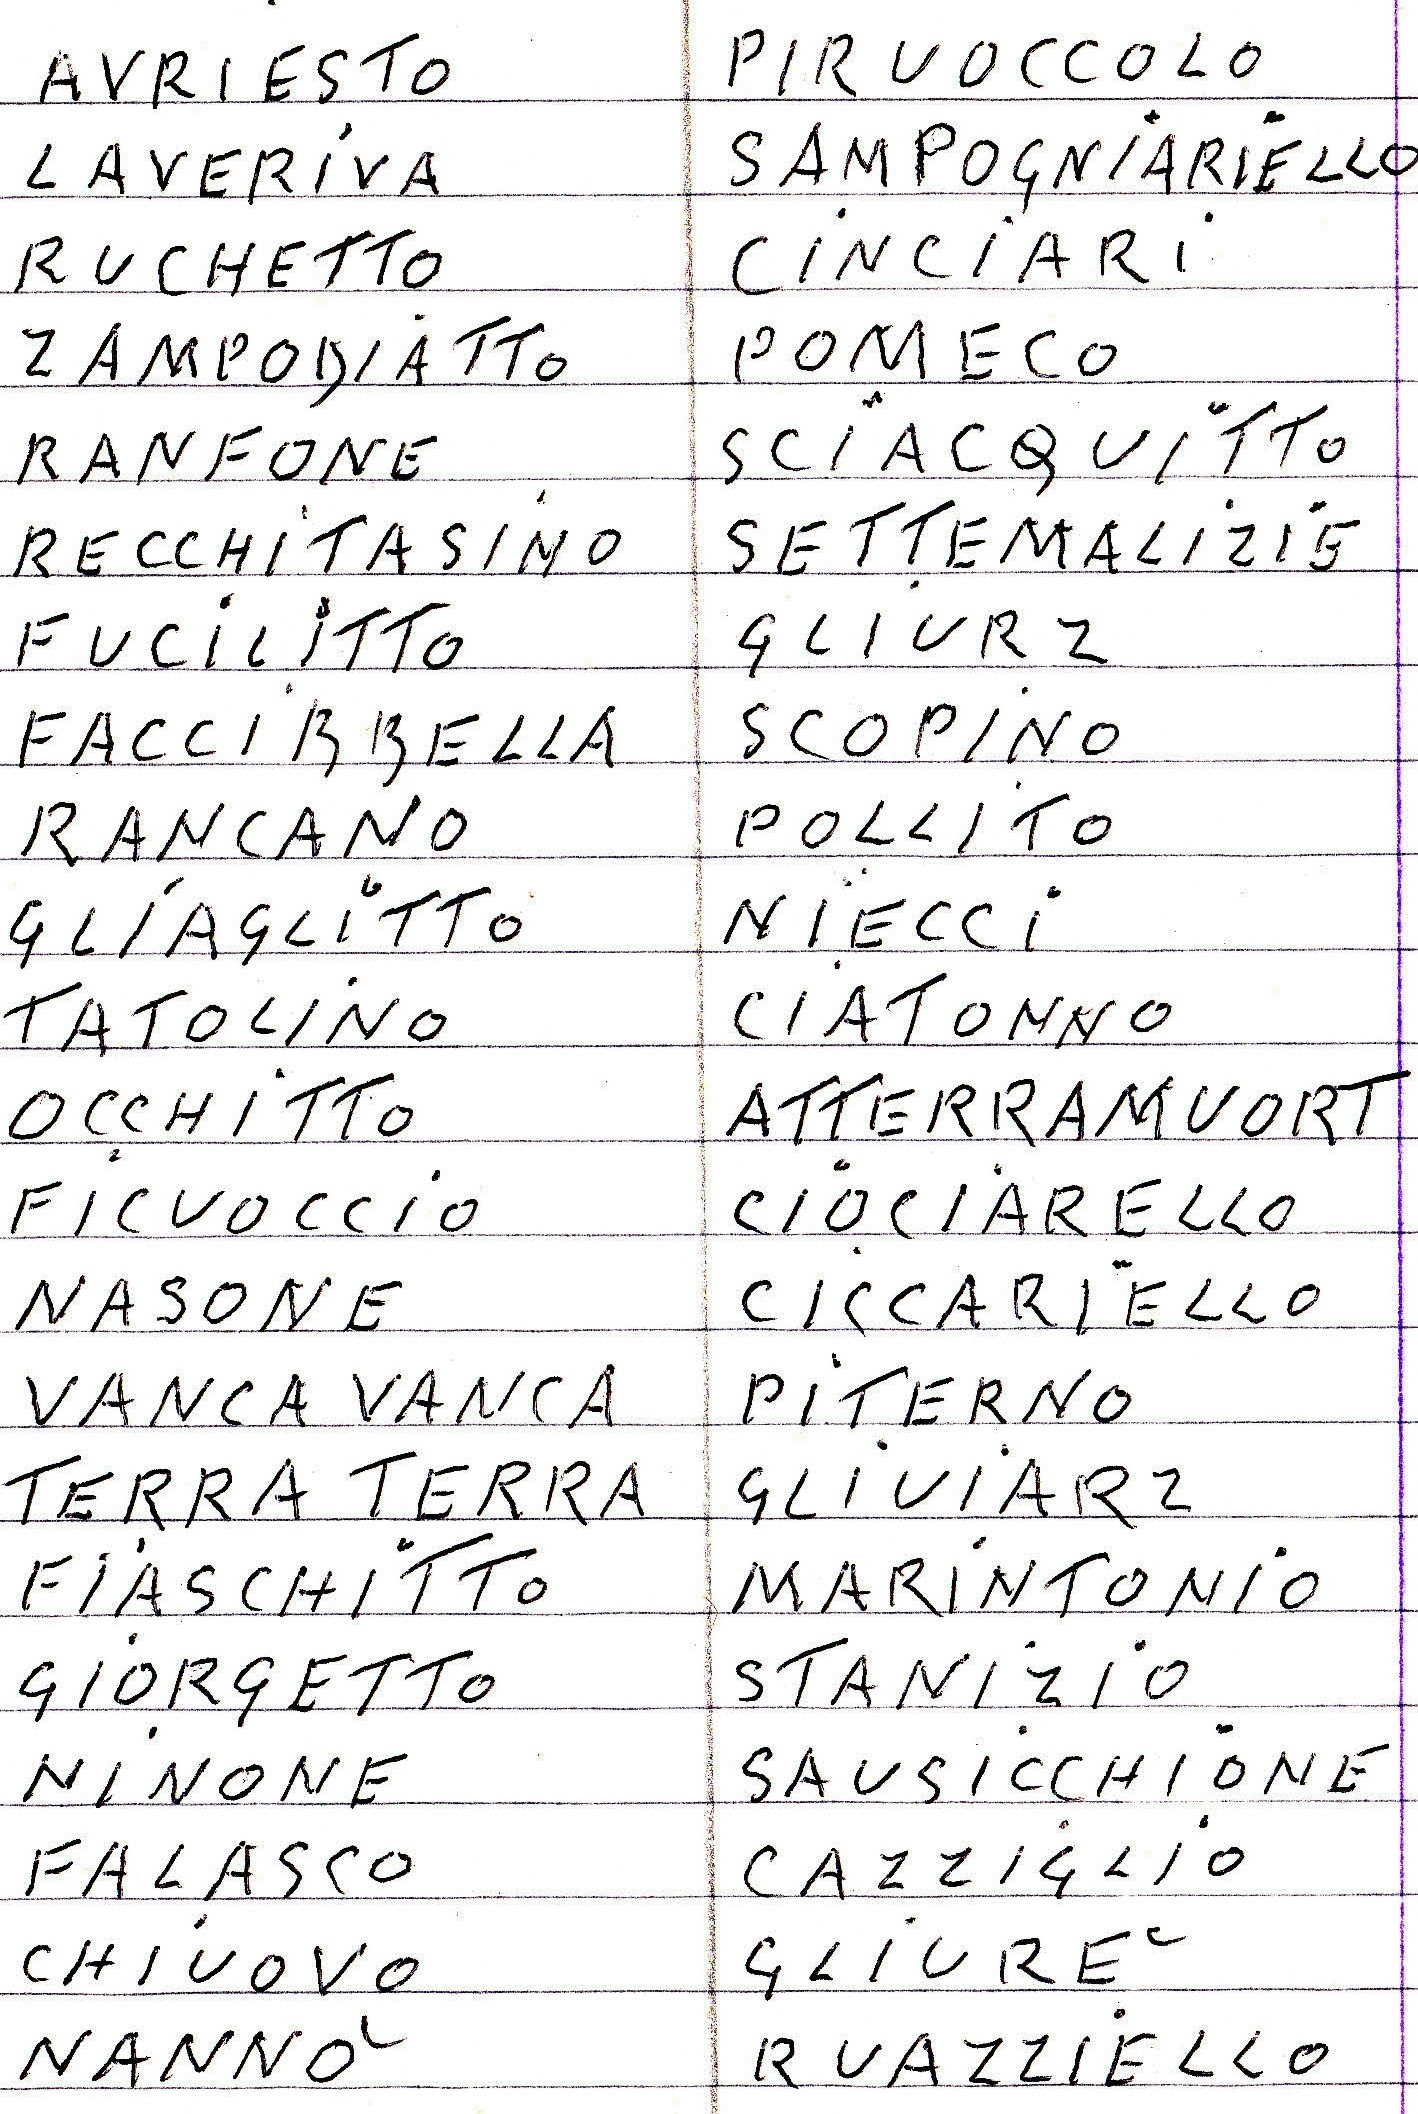 AVRIESTO
LAVERIVA
RUCHETTO
ZAMPOBIATTO
RANFONE
RECCHITASINO
FUCILITTO
FACCIBBELLA
RANCANO
GLIAGLITTO
TATOLINO
OCCHITTO
FICUOCCIO
NASONE
VANCA VANCA
TERRA TERRA
FIASCHITTO
GIORGETTO
NINONE
FALASCO
CHIUOVO
NANNÒ
PIRUOCCOLO
SAMPOGNIARIELLO
CINCIARI
POMECO
SCIACQUITTO
SETTEMALIZIE
GLIURZ
SCOPINO
POLLITO
NIECCI
CIATONNO
ATTERRAMUORT
CIOCIARELLO
CICCARIELLO
PITERNO
GLIUIARZ
MARINTONIO
STANIZIO
SAUSICCHIONE
CAZZIGLIO
GLIURÈ
RUAZZIELLO